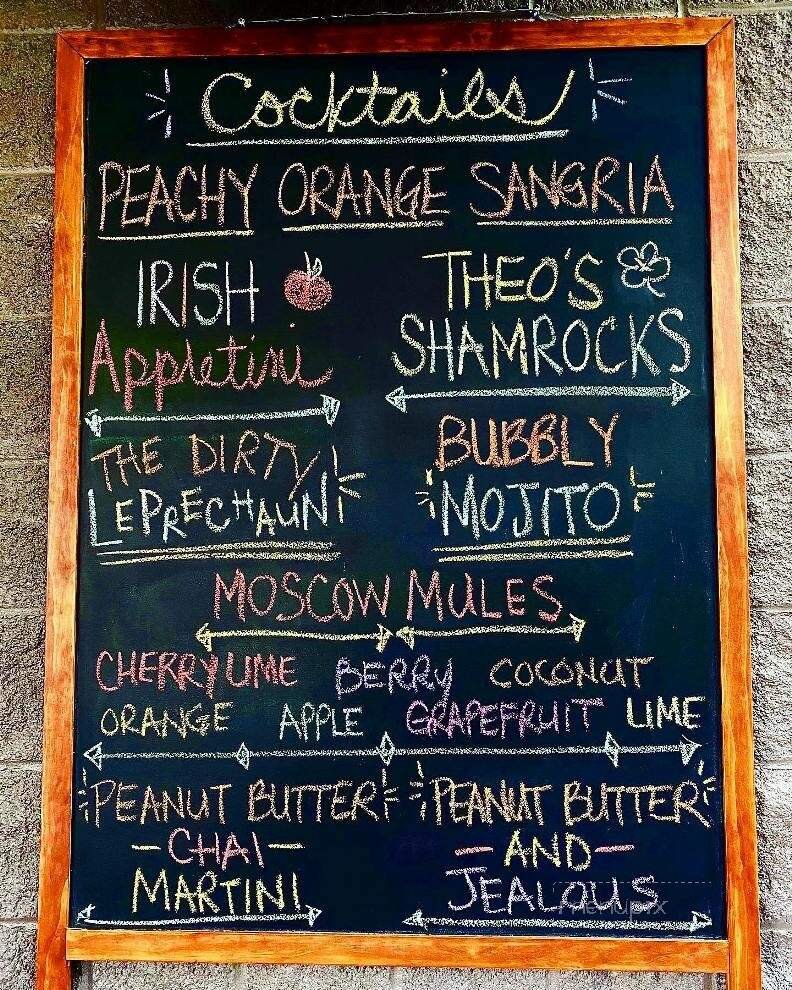 Cocktails
PEACHY ORANGE SANGRIA
IRISH
Appletini
THEO'S
SHAMROCKS
THE DIRTY
LEPRECHAUN
BUBBLY
MOJITO
MOSCOW MULES
CHERRY LIME BERRY COCONUT
ORANGE APPLE GRAPEFRUIT LIME
PEANUT BUTTER
-CHAI-
MARTINI
PEANUT BUTTER
-AND-
JEALOUS
menupix